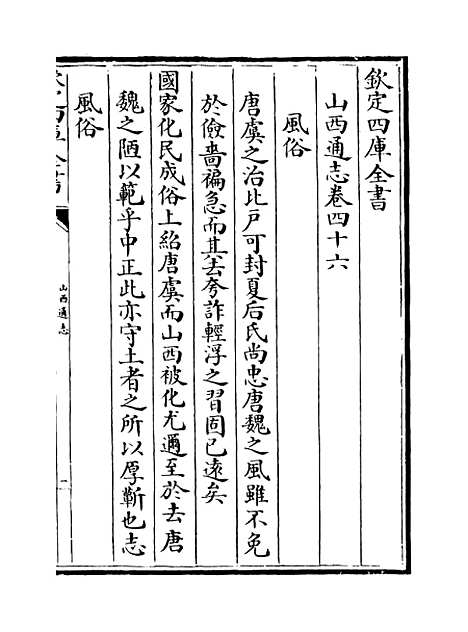 欽定四庫全書
山西通志卷四十六
風俗
唐虞之治比戶可封夏后氏尚忠唐魏之風雖不免
於儉嗇褊急而其去夸詐輕浮之習固已遠矣
國家化民成俗上紹唐虞而山西被化尤邇至於去唐
魏之陋以範乎中正此亦守土者之所以厚蘄也志
風俗
山西通志